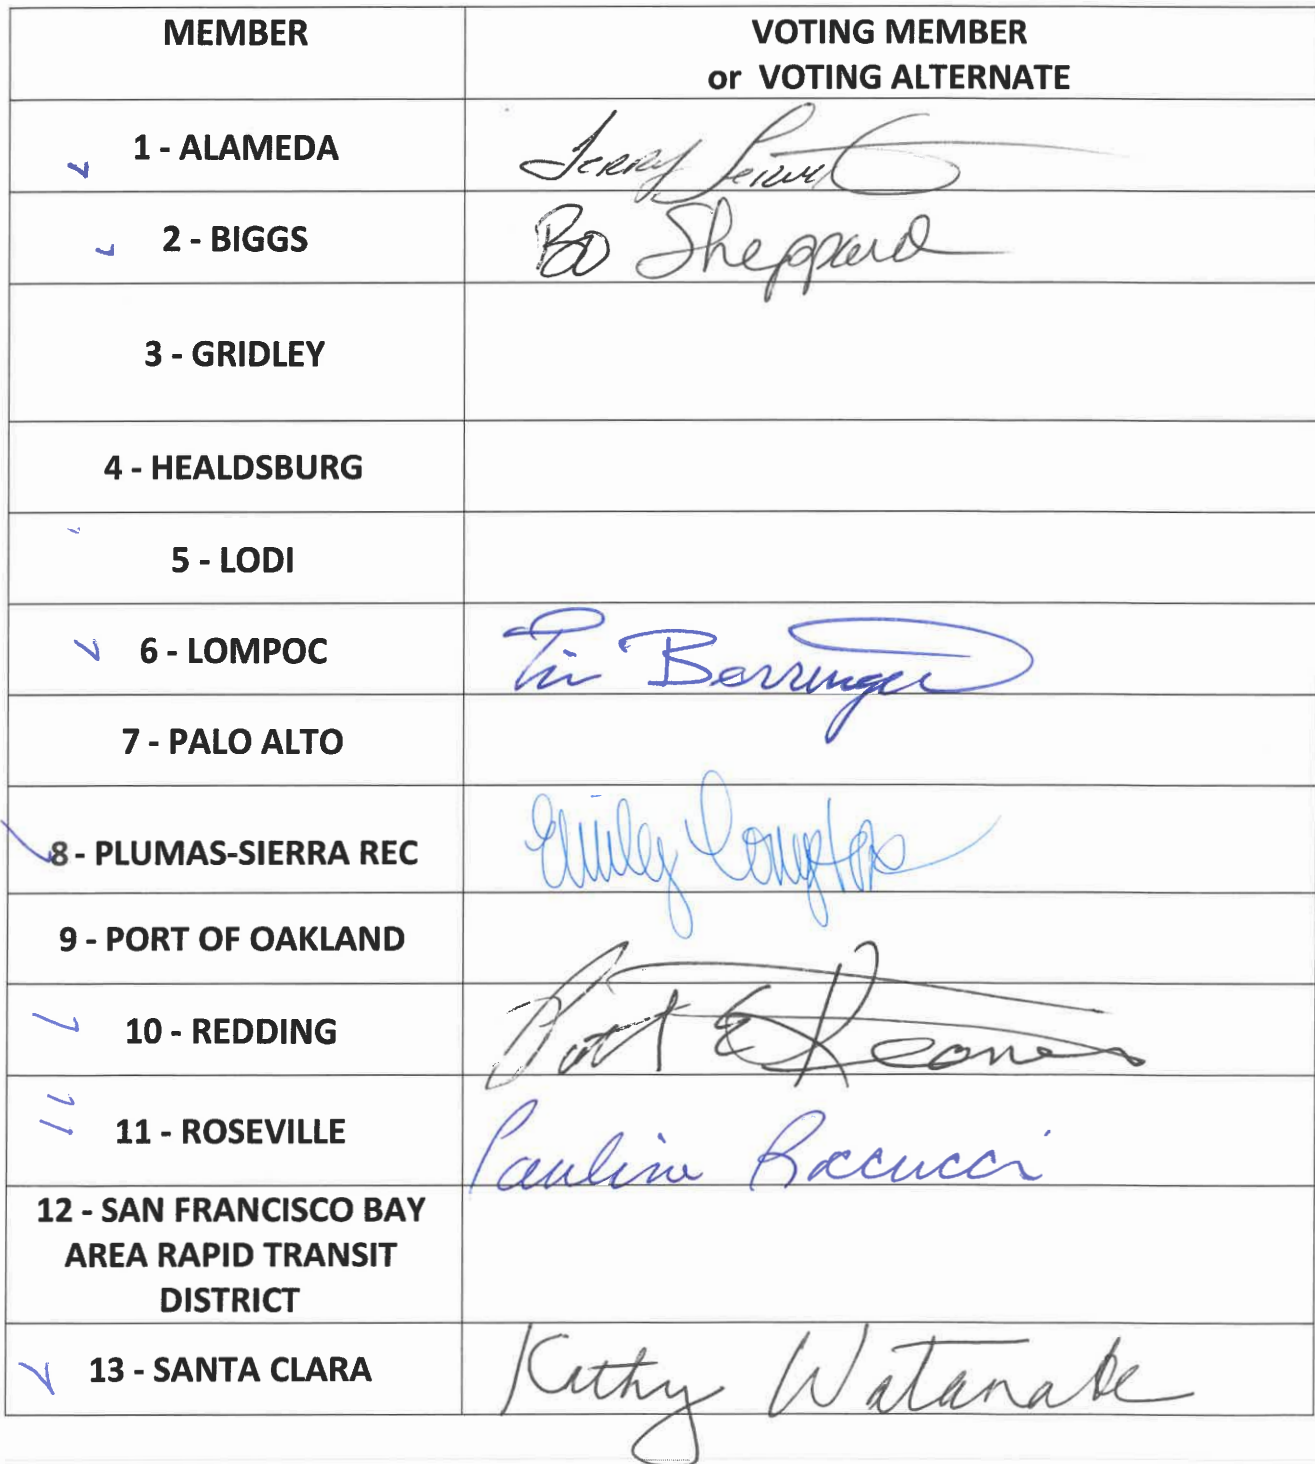 MEMBER
VOTING MEMBER
or VOTING ALTERNATE
1 - ALAMEDA
Jerry
2 - BIGGS
Bo Sheppard
3 - GRIDLEY
4 - HEALDSBURG
5 - LODI
6 - LOMPOC
Berringer
7 - PALO ALTO
8 - PLUMAS-SIERRA REC
Emily Compton
9 - PORT OF OAKLAND
10 - REDDING
11 - ROSEVILLE
Pauline Roccucci
12 - SAN FRANCISCO BAY
AREA RAPID TRANSIT
DISTRICT
13 - SANTA CLARA
Kathy Watanabe